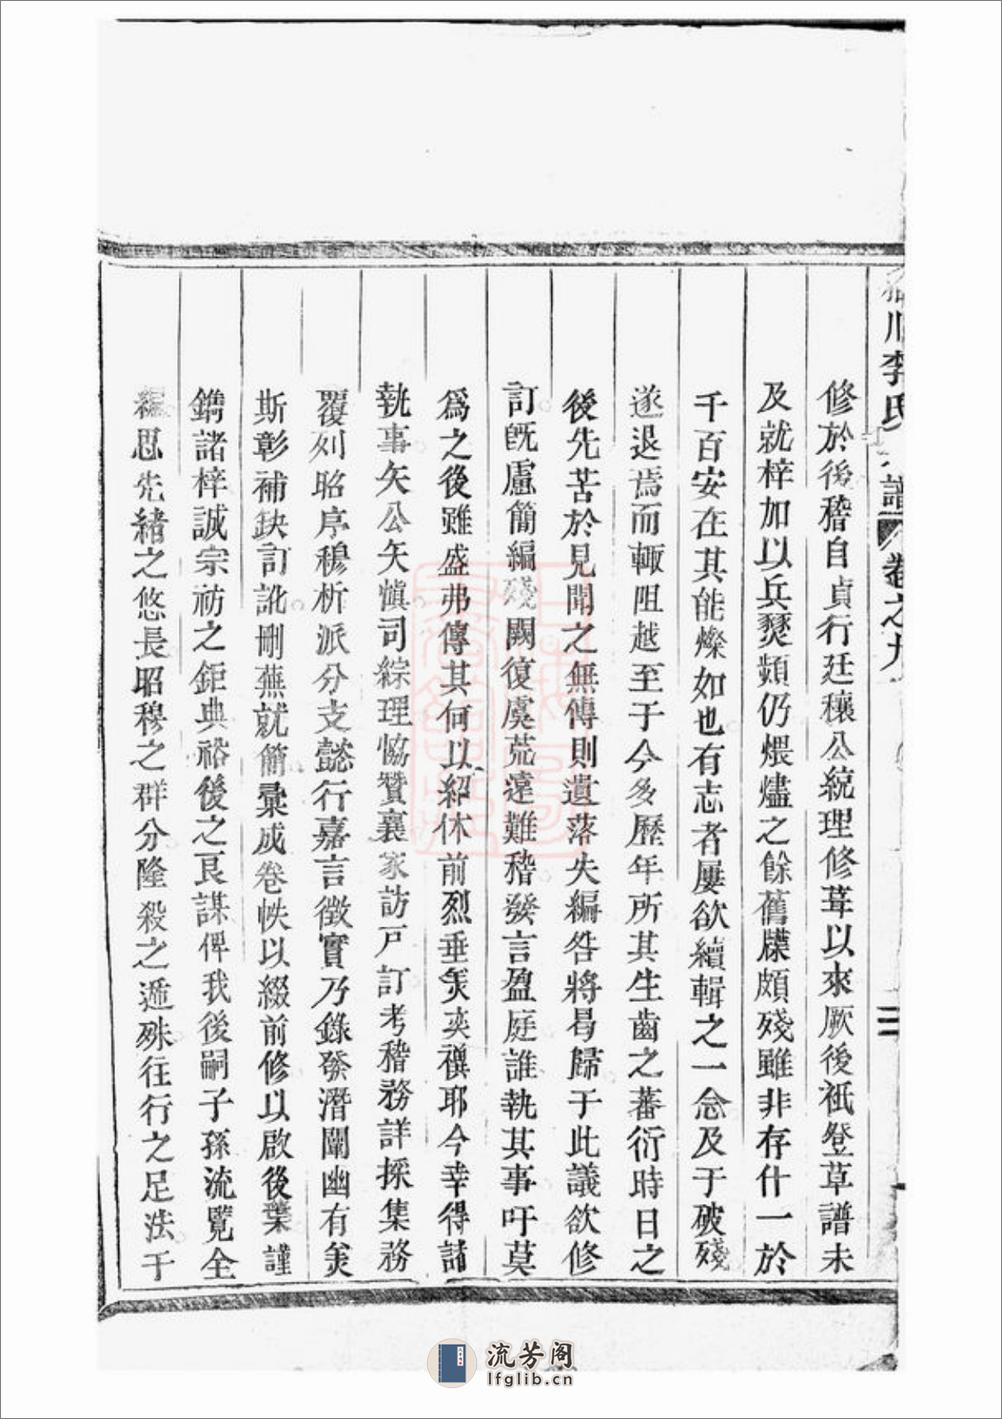 川李氏譜 卷之九 三
修於後稽自貞行廷穰公統理修葺以來厥後祇登草譜未
及就梓加以兵燹頻仍煨燼之餘舊牒頗殘雖非存什一於
千百安在其能燦如也有志者屢欲續輯之一念及于破殘
遂退焉而輙阻越至于今多歷年所其生齒之蕃衍時日之
後先苦於見聞之無傳則遺落失編咎將曷歸于此議欲修
訂旣慮簡編殘闕復虞荒遠難稽發言盈庭誰執其事吁莫
爲之後雖盛弗傳其何以紹休前烈垂羙奕禩耶今幸得諸
執事矢公矢愼司綜理恊贊襄家訪戸訂考稽務詳採集務
覆列昭序穆析派分支懿行嘉言徵實乃錄發潛闡幽有羙
斯彰補缺訂訛刪蕪就簡彙成卷帙以綴前修以啟後葉謹
鐫諸梓誠宗祊之鉅典裕後之良謀俾我後嗣子孫流覧全
編思先緒之悠長昭穆之群分隆殺之遞殊往行之足法千
流芳阁
lfglib.cn